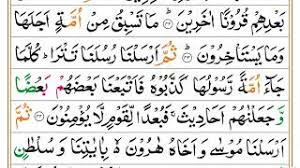 بَعْدِهِمْ قُرُوْنًا اٰخَرِيْنَ ؕ ﴿۴۲﴾ مَا تَسْبِقُ مِنْ اُمَّةٍ اَجَلَهَا
وَمَا يَسْتَاْخِرُوْنَ ؕ ﴿۴۳﴾ ثُمَّ اَرْسَلْنَا رُسُلَنَا تَتْرَا ؕ كُلَّمَا
جَآءَ اُمَّةً رَّسُوْلُهَا كَذَّبُوْهُ فَاَتْبَعْنَا بَعْضَهُمْ بَعْضًا وَّ
جَعَلْنٰهُمْ اَحَادِيْثَ ۚ فَبُعْدًا لِّقَوْمٍ لَّا يُؤْمِنُوْنَ ﴿۴۴﴾ ثُمَّ
اَرْسَلْنَا مُوْسٰى وَ اَخَاهُ هٰرُوْنَ ۙ۬ بِاٰيٰتِنَا وَ سُلْطٰنٍ